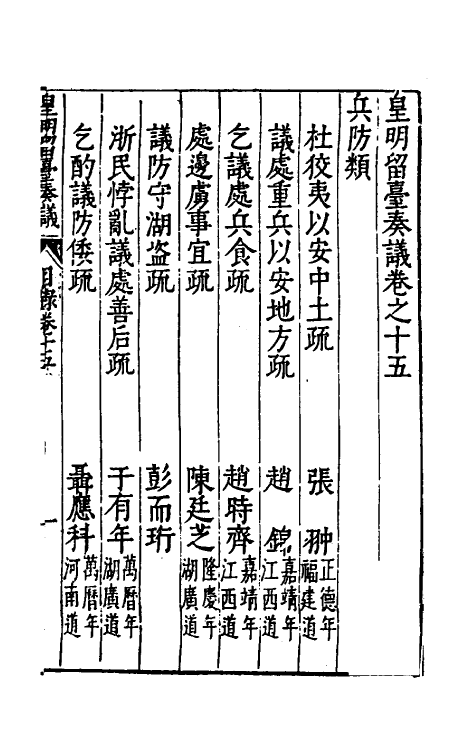 皇明留臺奏議卷之十五
兵防類
杜狡夷以安中土疏　張翀　正德年福建道
議處重兵以安地方疏　趙錦　嘉靖年江西道
乞議處兵食疏　趙時齊　嘉靖年江西道
處邊虜事宜疏　陳廷芝　隆慶年湖廣道
議防守湖盗疏　彭而珩
浙民悖亂議處善后疏　于有年　萬曆年湖廣道
乞酌議防倭疏　聶應科　萬曆年河南道
皇明留臺奏議　目錄卷十五　一